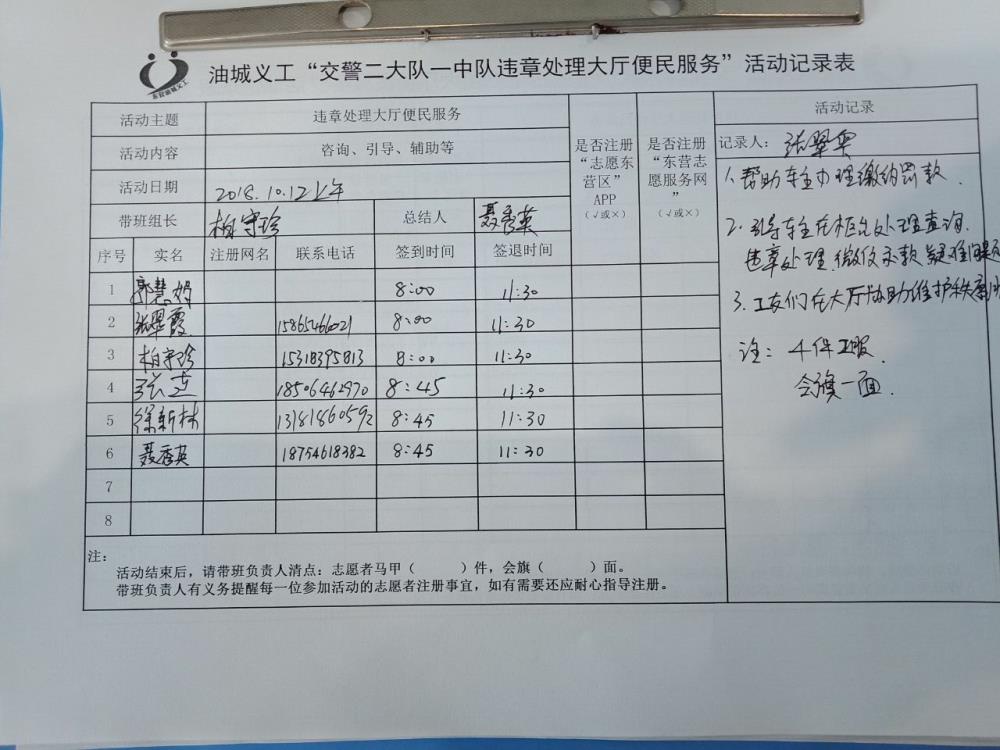 东营油城义工
油城义工“交警二大队一中队违章处理大厅便民服务”活动记录表
活动主题 违章处理大厅便民服务
活动内容 咨询、引导、辅助等
活动日期 2018.10.12上午
带班组长 柏守珍 总结人 聂秀英
序号 实名 注册网名 联系电话 签到时间 签退时间
是否注册
“志愿东
营区”
APP
(√或×)
是否注册
“东营志
愿服务网
”
(√或×)
1 郭慧娟 8:00 11:30
2 张翠霞 15865466021 8:00 11:30
3 柏守珍 15318395813 8:00 11:30
4 张莲 18506462970 8:45 11:30
5 徐新林 13181860592 8:45 11:30
6 聂秀英 18754618382 8:45 11:30
7
8
活动记录
记录人: 张翠霞
1、帮助车主办理缴纳罚款.
2. 引导车主在柜台处理查询.
违章处理.微信交款疑难问题
3. 工友们在大厅协助维护秩序
注: 4件工服.
会旗一面.
注:
活动结束后，请带班负责人清点：志愿者马甲（ ）件，会旗（ ）面。
带班负责人有义务提醒每一位参加活动的志愿者注册事宜，如有需要还应耐心指导注册。